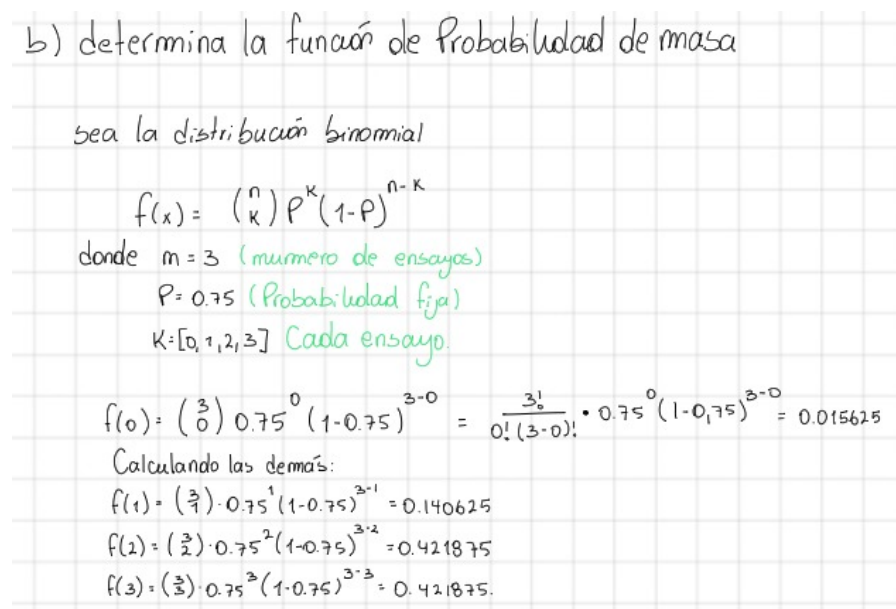 b) determina la función de Probabilidad de masa
sea la distribución binomial
f(x) = (n K) P^K (1-P)^n-K
donde m = 3 (murmero de ensayos)
P = 0.75 (Probabilidad fija)
K = [0, 1, 2, 3] Cada ensayo.
f(0) = (3 0) 0.75^0 (1-0.75)^3-0 = 3!/0!(3-0)! • 0.75^0 (1-0,75)^3-0 = 0.015625
Calculando las demás:
f(1) = (3 1) · 0.75^1 (1-0.75)^3-1 = 0.140625
f(2) = (3 2) · 0.75^2 (1-0.75)^3-2 = 0.421875
f(3) = (3 3) · 0.75^3 (1-0.75)^3-3 = 0.421875.